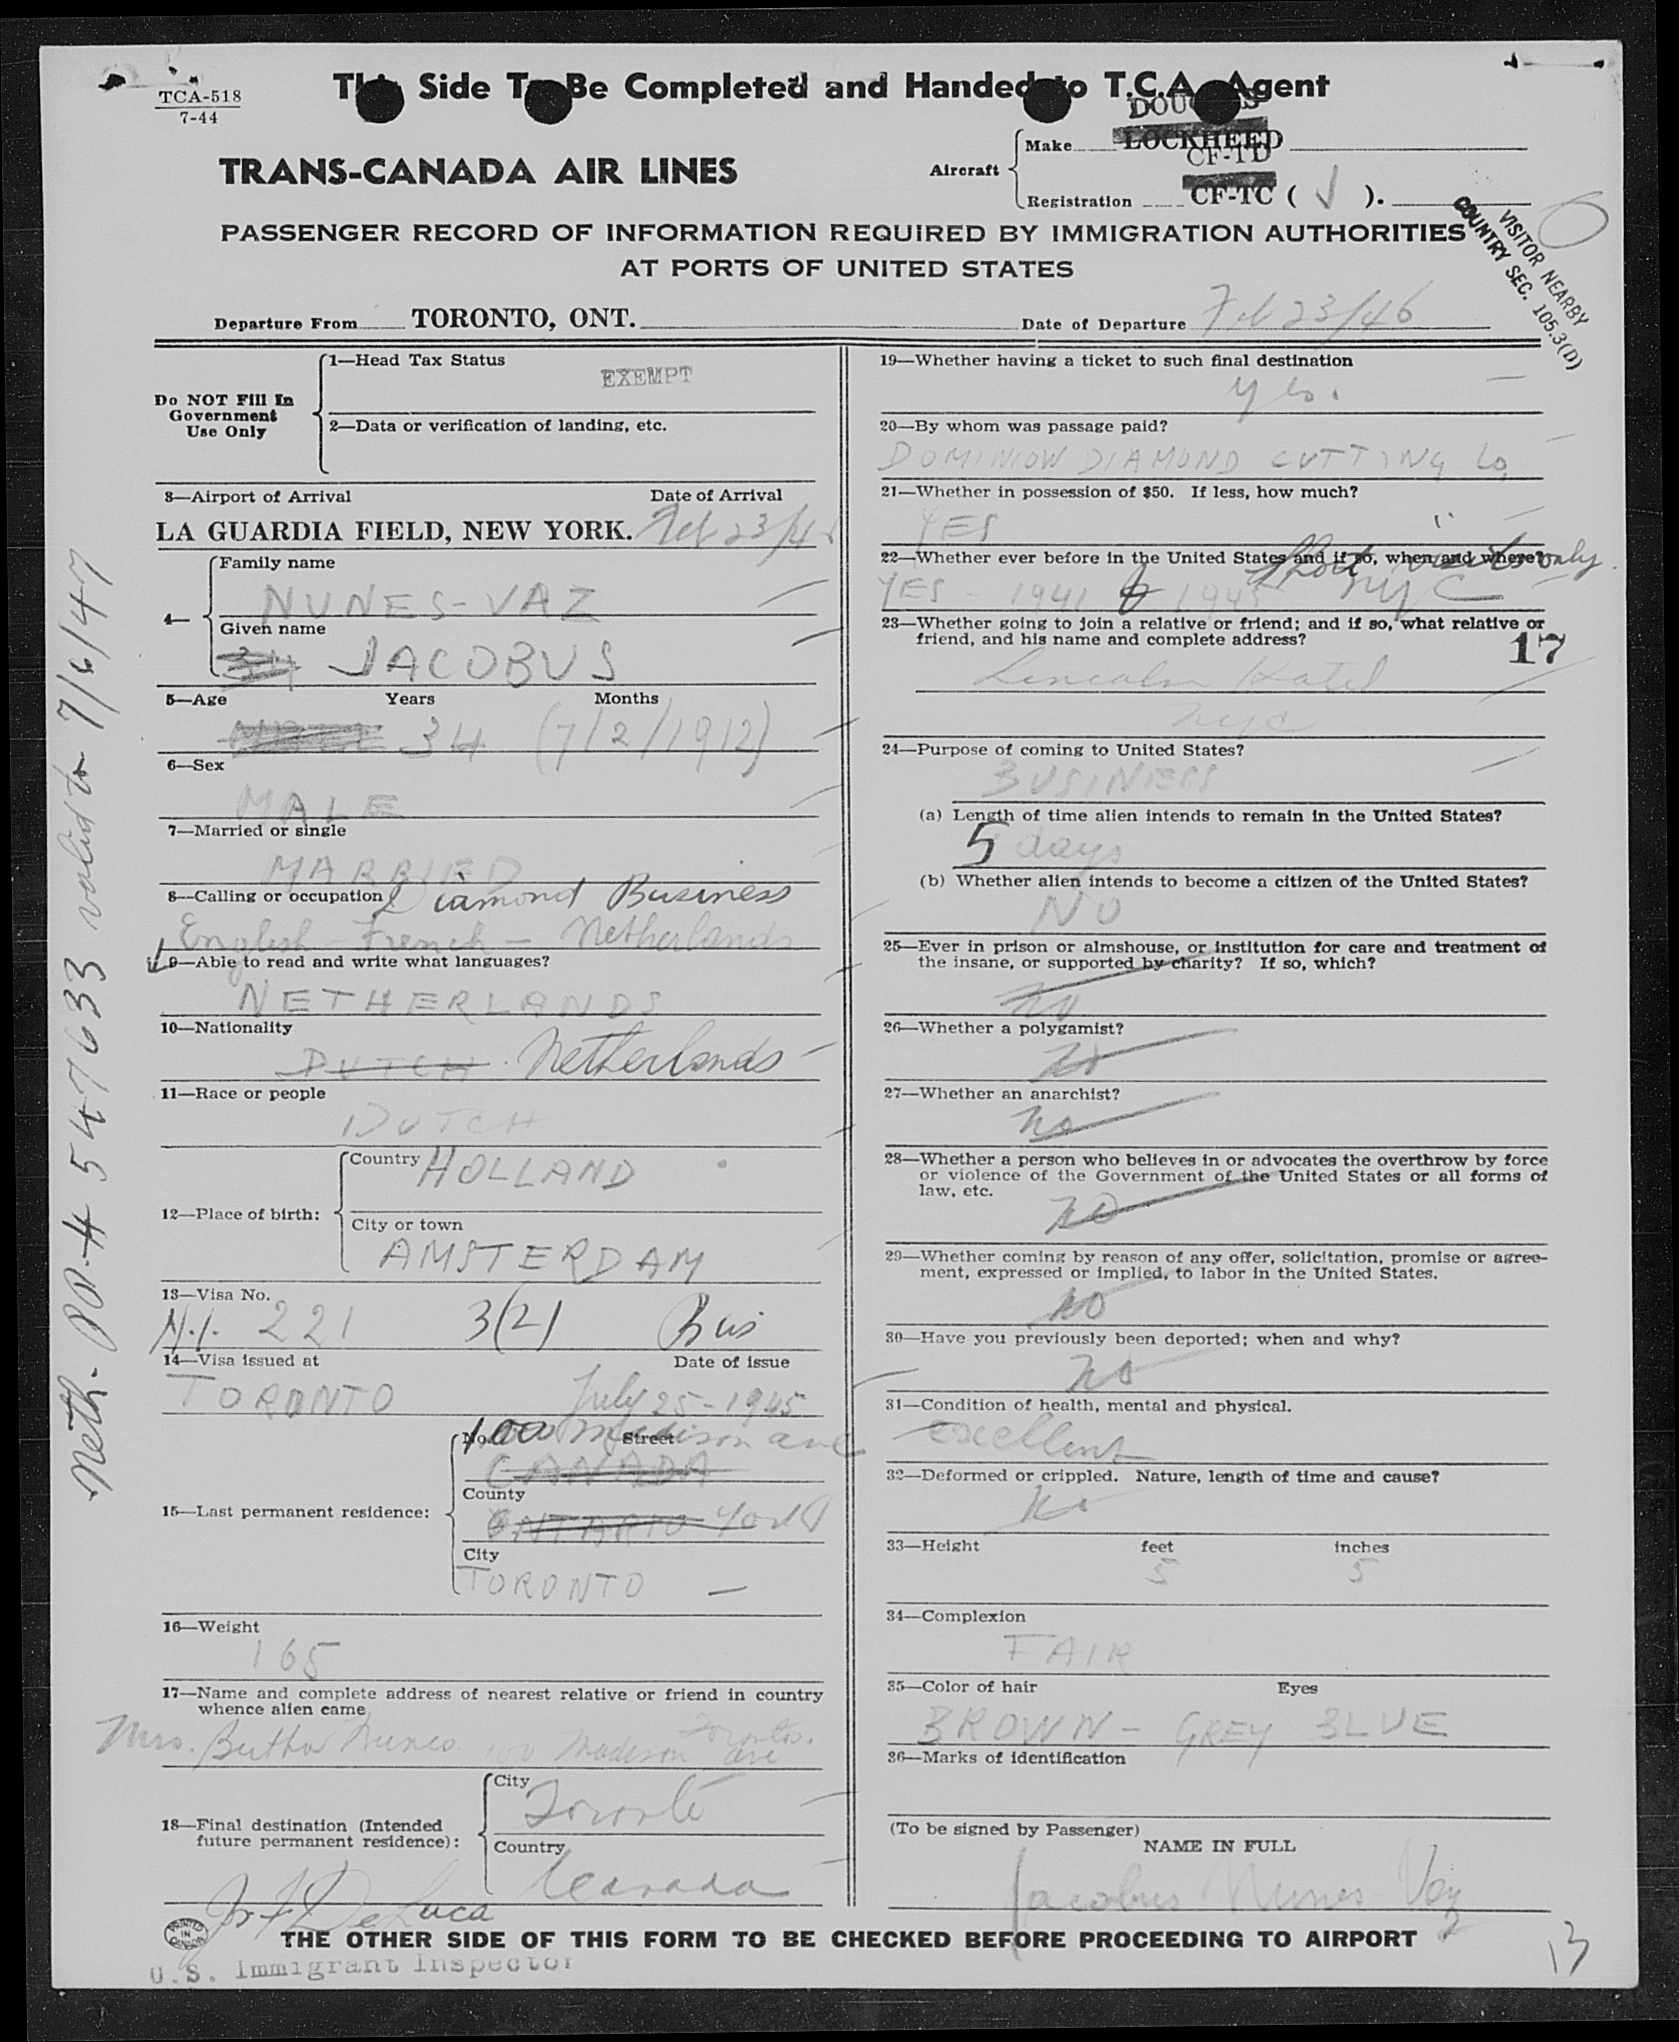 TCA-518
7-44
This Side To Be Completed and Handed to T.C.A. Agent
TRANS-CANADA AIR LINES
Aircraft
DOUGLAS
Make LOCKHEED
CF-TD
Registration CF-TC ( J ).
PASSENGER RECORD OF INFORMATION REQUIRED BY IMMIGRATION AUTHORITIES
AT PORTS OF UNITED STATES
VISITOR NEARBY
COUNTRY SEC. 105.3(D)
Departure From TORONTO, ONT.
Date of Departure Feb 23/46
Do NOT Fill In
Government
Use Only
1—Head Tax Status
EXEMPT
2—Data or verification of landing, etc.
3—Airport of Arrival Date of Arrival
LA GUARDIA FIELD, NEW YORK. Feb 23/46
4—
Family name
NUNES-VAZ
Given name
34 JACOBUS
5—Age Years Months
34 (7/2/1912)
6—Sex
MALE
7—Married or single
MARRIED
8—Calling or occupation Diamond Business
English - French - Netherlands
9—Able to read and write what languages?
NETHERLANDS
10—Nationality
DUTCH Netherlands
11—Race or people
DUTCH
12—Place of birth:
Country HOLLAND
City or town
AMSTERDAM
13—Visa No.
N.I. 221 3(2) Bus
14—Visa issued at Date of issue
TORONTO July 25-1945
15—Last permanent residence:
No. Street
100 Madison ave
CANADA
County
ONTARIO York
City
TORONTO
16—Weight
165
17—Name and complete address of nearest relative or friend in country
whence alien came
Mrs. Bertha Nunes 100 Madison ave Toronto.
18—Final destination (Intended
future permanent residence):
City
Toronto
Country
Canada
De Luca
U.S. Immigrant Inspector
PRINTED
IN
CANADA
Neth. PP.# 547633 valid to 7/6/47
19—Whether having a ticket to such final destination
Yes.
20—By whom was passage paid?
DOMINION DIAMOND CUTTING Co.
21—Whether in possession of $50. If less, how much?
YES
22—Whether ever before in the United States and if so, when and where?
short visits only
YES - 1941 to 1945 NYC
23—Whether going to join a relative or friend; and if so, what relative or
friend, and his name and complete address?
17
Lincoln Hotel
NYC
24—Purpose of coming to United States?
BUSINESS
(a) Length of time alien intends to remain in the United States?
5 days
(b) Whether alien intends to become a citizen of the United States?
NO
25—Ever in prison or almshouse, or institution for care and treatment of
the insane, or supported by charity? If so, which?
no
26—Whether a polygamist?
no
27—Whether an anarchist?
no
28—Whether a person who believes in or advocates the overthrow by force
or violence of the Government of the United States or all forms of
law, etc.
no
29—Whether coming by reason of any offer, solicitation, promise or agree-
ment, expressed or implied, to labor in the United States.
no
30—Have you previously been deported; when and why?
no
31—Condition of health, mental and physical.
excellent
32—Deformed or crippled. Nature, length of time and cause?
no
33—Height feet inches
5 5
34—Complexion
FAIR
35—Color of hair Eyes
BROWN - GREY BLUE
36—Marks of identification
(To be signed by Passenger)
NAME IN FULL
Jacobus Nunes Vaz
THE OTHER SIDE OF THIS FORM TO BE CHECKED BEFORE PROCEEDING TO AIRPORT
13